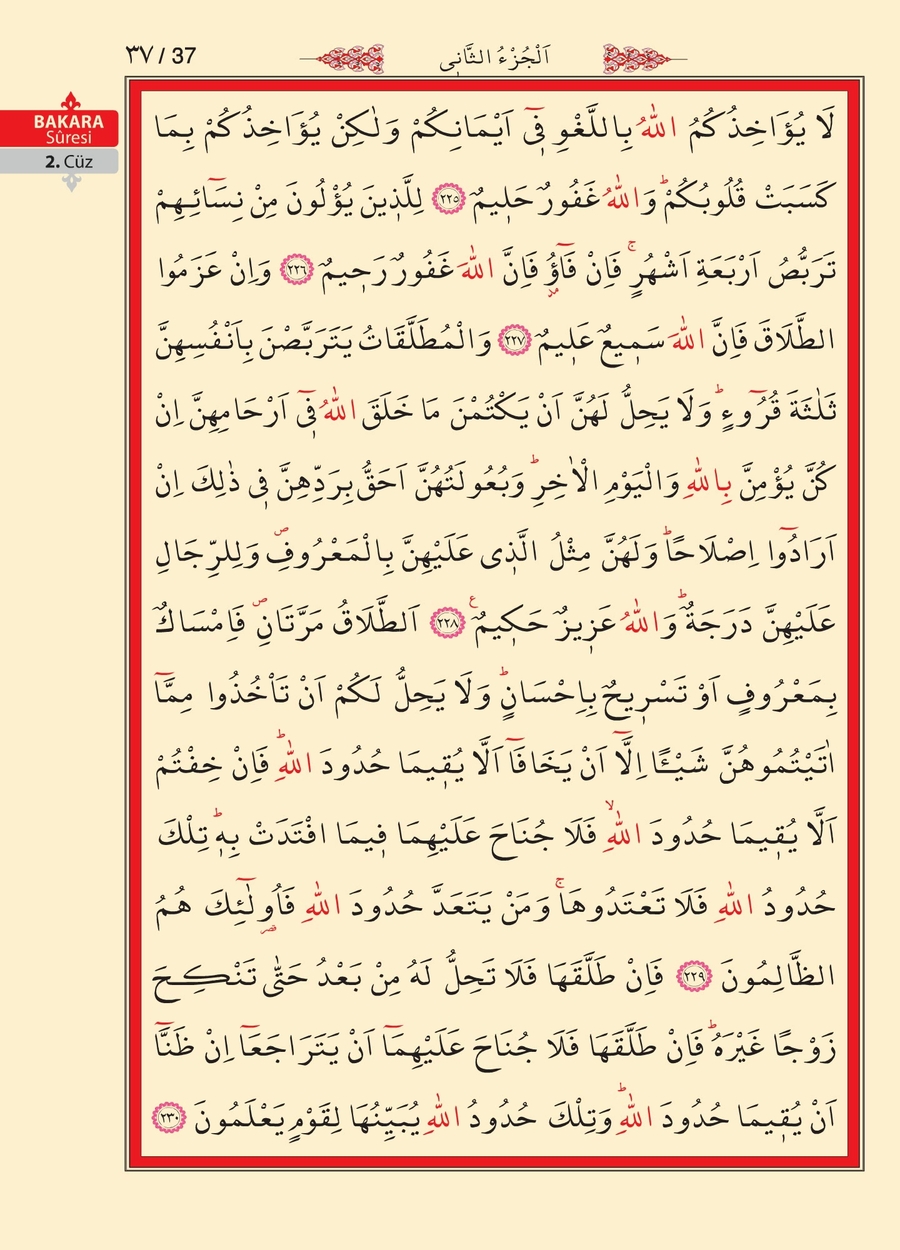 ٣٧ / 37
اَلْجُزْءُ الثَّانِى
BAKARA
Sûresi
2. Cüz
لَا يُؤَاخِذُكُمُ اللّٰهُ بِاللَّغْوِ فِىٓ اَيْمَانِكُمْ وَلٰكِنْ يُؤَاخِذُكُمْ بِمَا
كَسَبَتْ قُلُوبُكُمْؕ وَاللّٰهُ غَفُورٌ حَلِيمٌ ﴿٢٢٥﴾ لِلَّذِينَ يُؤْلُونَ مِنْ نِسَٓائِهِمْ
تَرَبُّصُ اَرْبَعَةِ اَشْهُرٍۚ فَاِنْ فَٓاؤُ فَاِنَّ اللّٰهَ غَفُورٌ رَحِيمٌ ﴿٢٢٦﴾ وَاِنْ عَزَمُوا
الطَّلَاقَ فَاِنَّ اللّٰهَ سَمِيعٌ عَلِيمٌ ﴿٢٢٧﴾ وَالْمُطَلَّقَاتُ يَتَرَبَّصْنَ بِاَنْفُسِهِنَّ
ثَلٰثَةَ قُرُٓوءٍؕ وَلَا يَحِلُّ لَهُنَّ اَنْ يَكْتُمْنَ مَا خَلَقَ اللّٰهُ فِىٓ اَرْحَامِهِنَّ اِنْ
كُنَّ يُؤْمِنَّ بِاللّٰهِ وَالْيَوْمِ الْاٰخِرِؕ وَبُعُولَتُهُنَّ اَحَقُّ بِرَدِّهِنَّ فِى ذٰلِكَ اِنْ
اَرَادُٓوا اِصْلَاحًاؕ وَلَهُنَّ مِثْلُ الَّذِى عَلَيْهِنَّ بِالْمَعْرُوفِۖ وَلِلرِّجَالِ
عَلَيْهِنَّ دَرَجَةٌؕ وَاللّٰهُ عَزِيزٌ حَكِيمٌ ﴿٢٢٨﴾ اَلطَّلَاقُ مَرَّتَانِۖ فَاِمْسَاكٌ
بِمَعْرُوفٍ اَوْ تَسْرِيحٌ بِاِحْسَانٍؕ وَلَا يَحِلُّ لَكُمْ اَنْ تَاْخُذُوا مِمَّٓا
اٰتَيْتُمُوهُنَّ شَيْـًٔا اِلَّٓا اَنْ يَخَافَٓا اَلَّا يُقِيمَا حُدُودَ اللّٰهِؕ فَاِنْ خِفْتُمْ
اَلَّا يُقِيمَا حُدُودَ اللّٰهِۙ فَلَا جُنَاحَ عَلَيْهِمَا فِيمَا افْتَدَتْ بِهِؕ تِلْكَ
حُدُودُ اللّٰهِ فَلَا تَعْتَدُوهَاۚ وَمَنْ يَتَعَدَّ حُدُودَ اللّٰهِ فَاُو۬لٰٓئِكَ هُمُ
الظَّالِمُونَ ﴿٢٢٩﴾ فَاِنْ طَلَّقَهَا فَلَا تَحِلُّ لَهُ مِنْ بَعْدُ حَتّٰى تَنْكِحَ
زَوْجًا غَيْرَهُؕ فَاِنْ طَلَّقَهَا فَلَا جُنَاحَ عَلَيْهِمَٓا اَنْ يَتَرَاجَعَٓا اِنْ ظَنَّٓا
اَنْ يُقِيمَا حُدُودَ اللّٰهِؕ وَتِلْكَ حُدُودُ اللّٰهِ يُبَيِّنُهَا لِقَوْمٍ يَعْلَمُونَ ﴿٢٣٠﴾